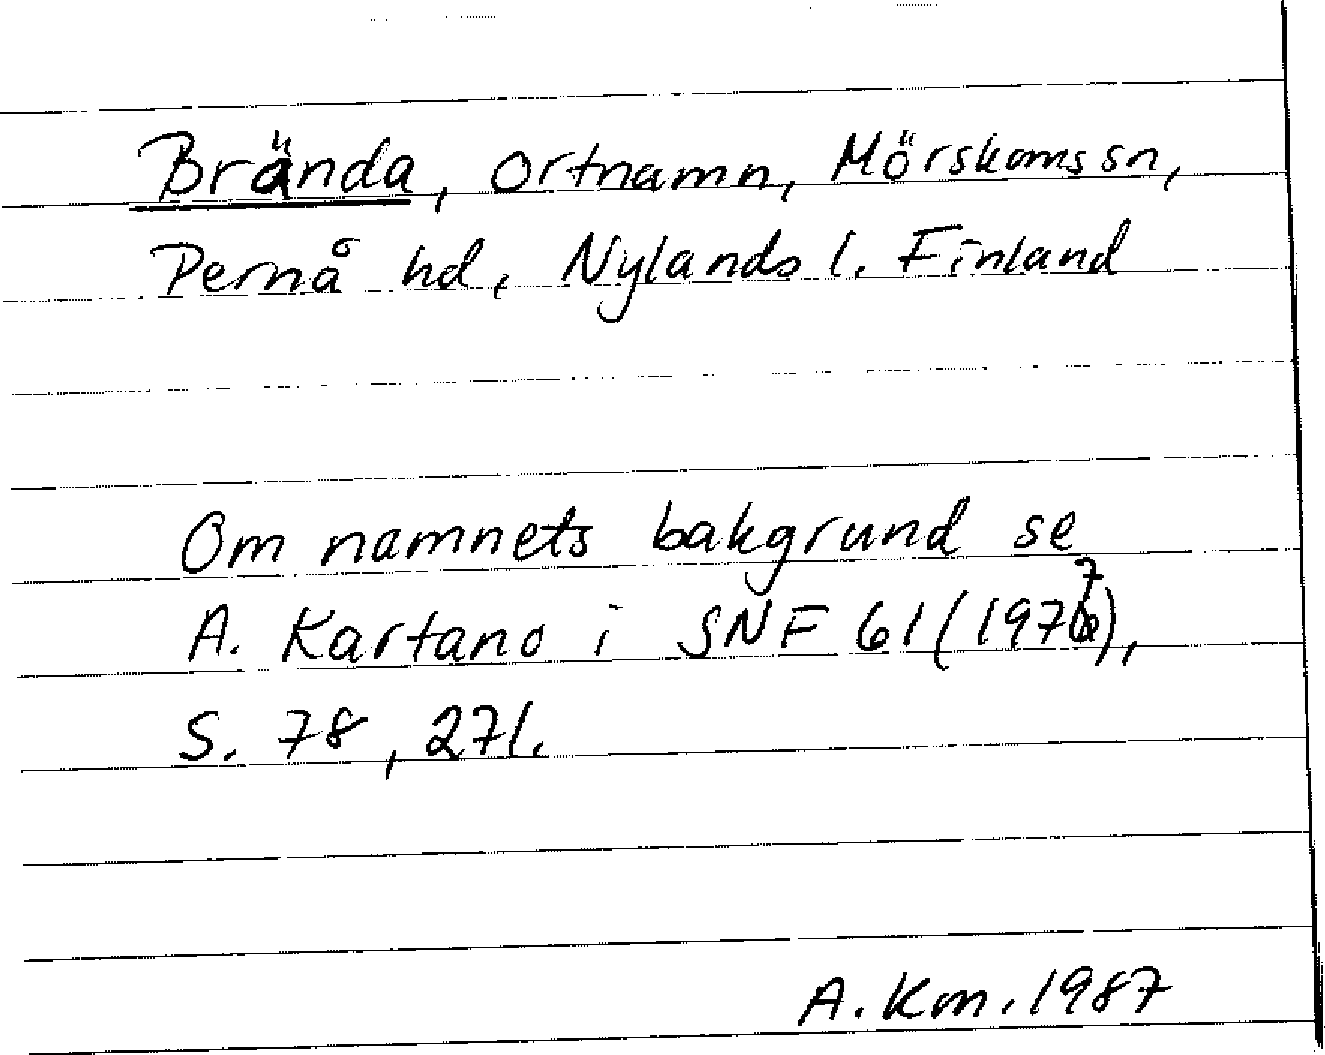 Brända, ortnamn, Mörskoms sn,
Pernå hd, Nylands l. Finland
Om namnets bakgrund se
A. Kartano i SNF 61 (1977),
S. 78, 271.
A. Km. 1987